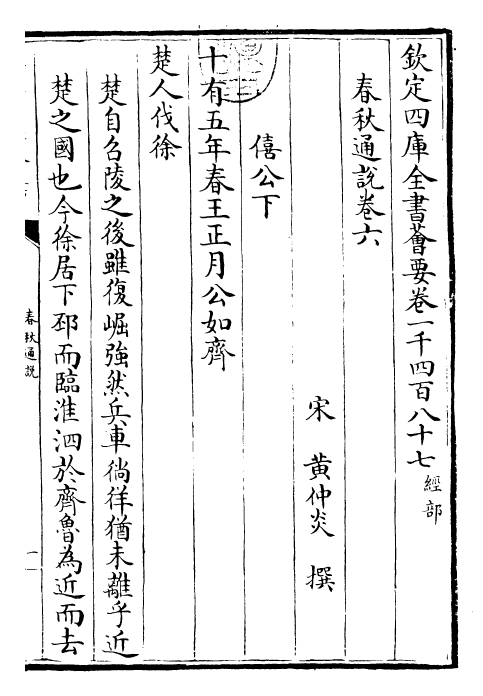 欽定四庫全書薈要卷一千四百八十七 經部
春秋通說卷六
宋 黃仲炎 撰
僖公下
十有五年春王正月公如齊
楚人伐徐
楚自召陵之後雖復崛強然兵車徜徉猶未離乎近
楚之國也今徐居下邳而臨淮泗於齊魯為近而去
春秋通說
一